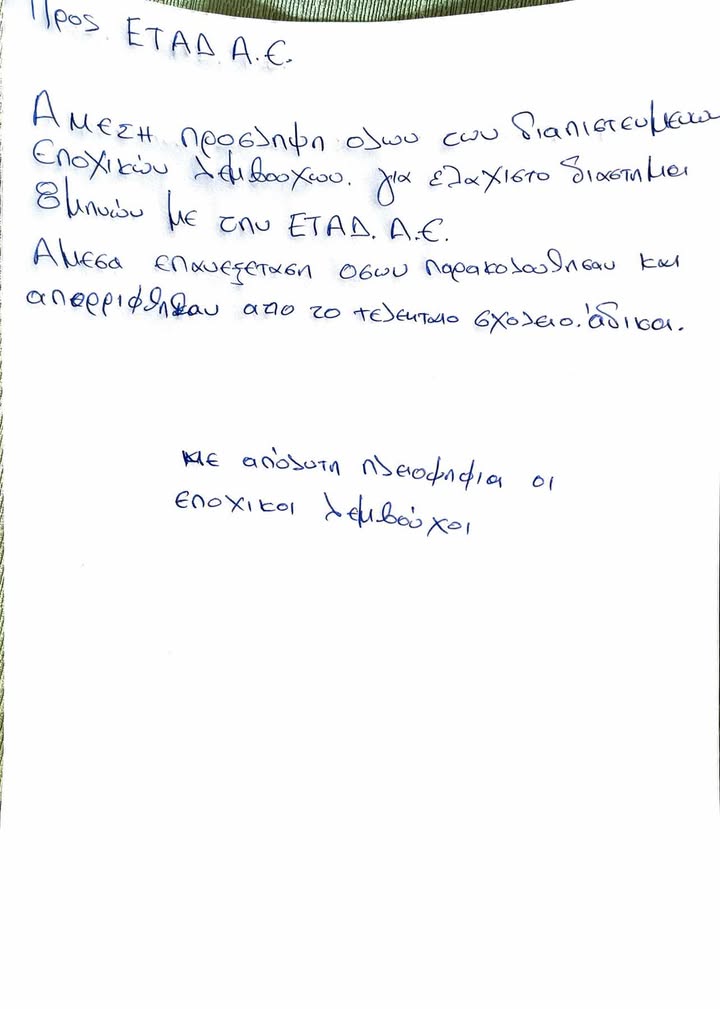 Προς ΕΤΑΔ Α.Ε.
Αμεση προσληψη ολων των διαπιστευμενων
Εποχικών λεμβουχων. για ελαχιστο διαστημα
8μηνών με την ΕΤΑΔ. Α.Ε.
Αμεσα επανεξεταση οσων παρακολουθησαν και
απορριφθηκαν απο το τελευταιο σχολειο. άδικα.
με απόλυτη πλειοψηφια οι
εποχικοι λεμβούχοι